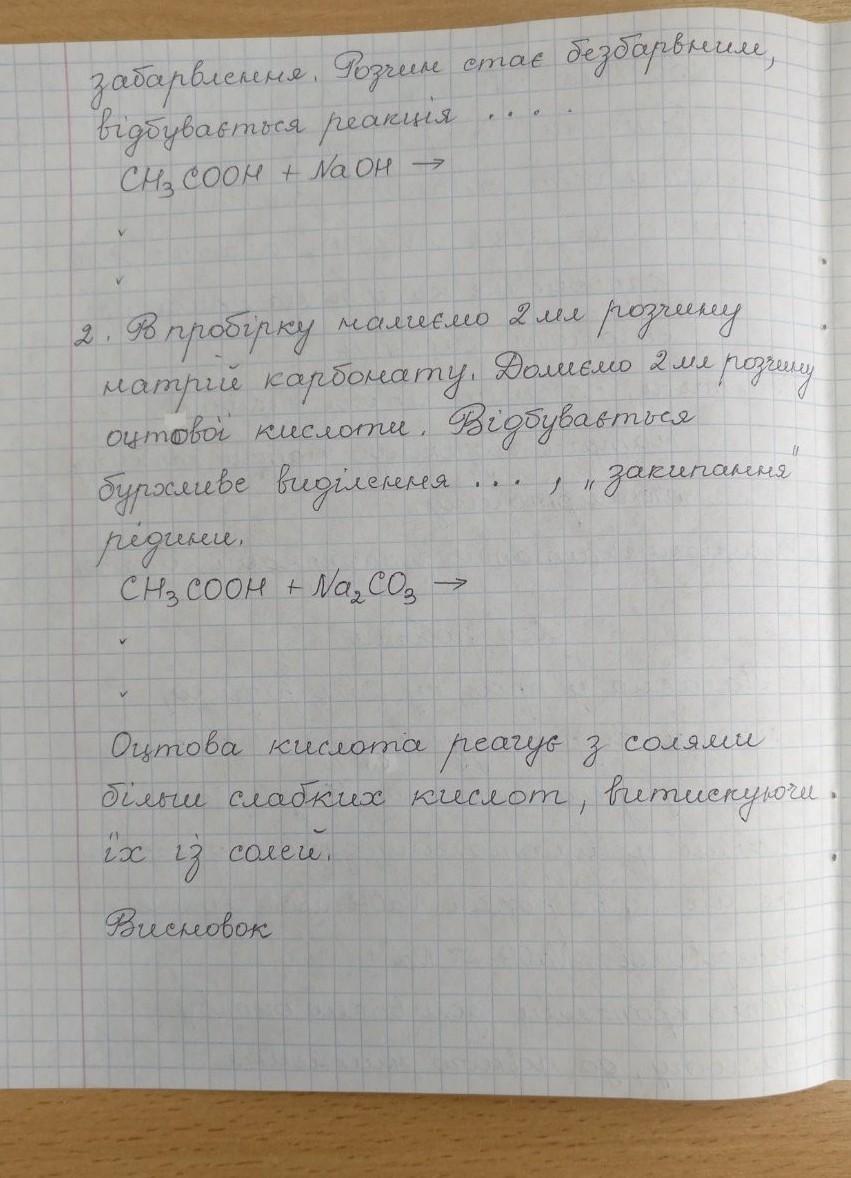 забарвлення. Розчин стає безбарвним,
відбувається реакція ....
CH₃COOH + NaOH →
2. В пробірку налиємо 2 мл розчину
натрій карбонату. Долиємо 2 мл розчину
оцтової кислоти. Відбувається
бурхливе виділення ..., „закипання"
рідини.
CH₃COOH + Na₂CO₃ →
Оцтова кислота реагує з солями
більш слабких кислот, витискуючи
їх із солей.
Висновок